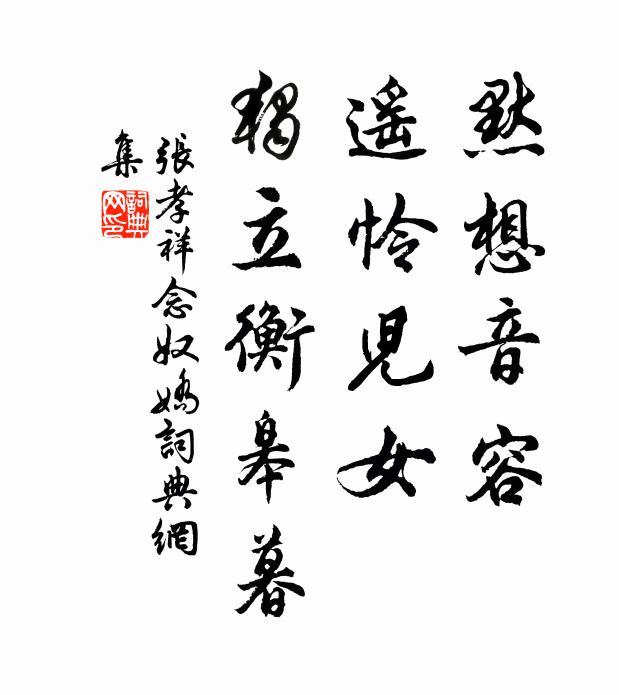 默想音容
遥怜兒女
獨立衡皋暮
張孝祥念奴嬌詞典網
集
詞典网印